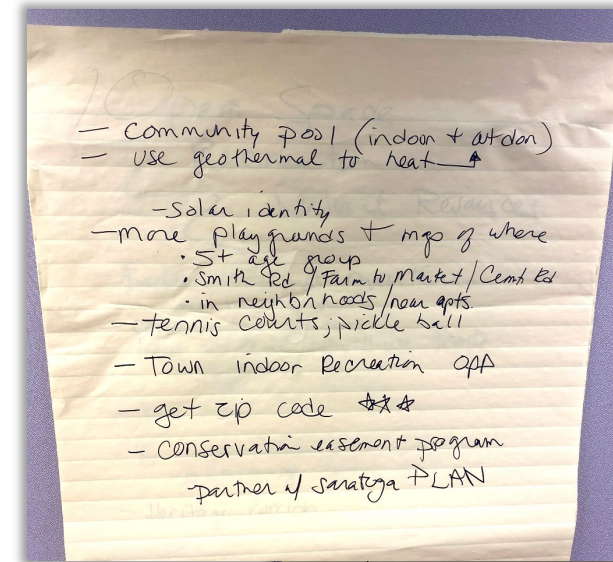 — Community pool (indoor + outdoor)
— use geothermal to heat
- Solar identity
— more playgrounds + map of where
• 5+ age group
• Smith Rd / Farm to Market / Cemt Rd
• in neighborhoods/near apts.
— tennis courts; pickle ball
— Town indoor Recreation opp
— get zip code ☆☆☆
— conservation easement program
- partner w/ saratoga PLAN